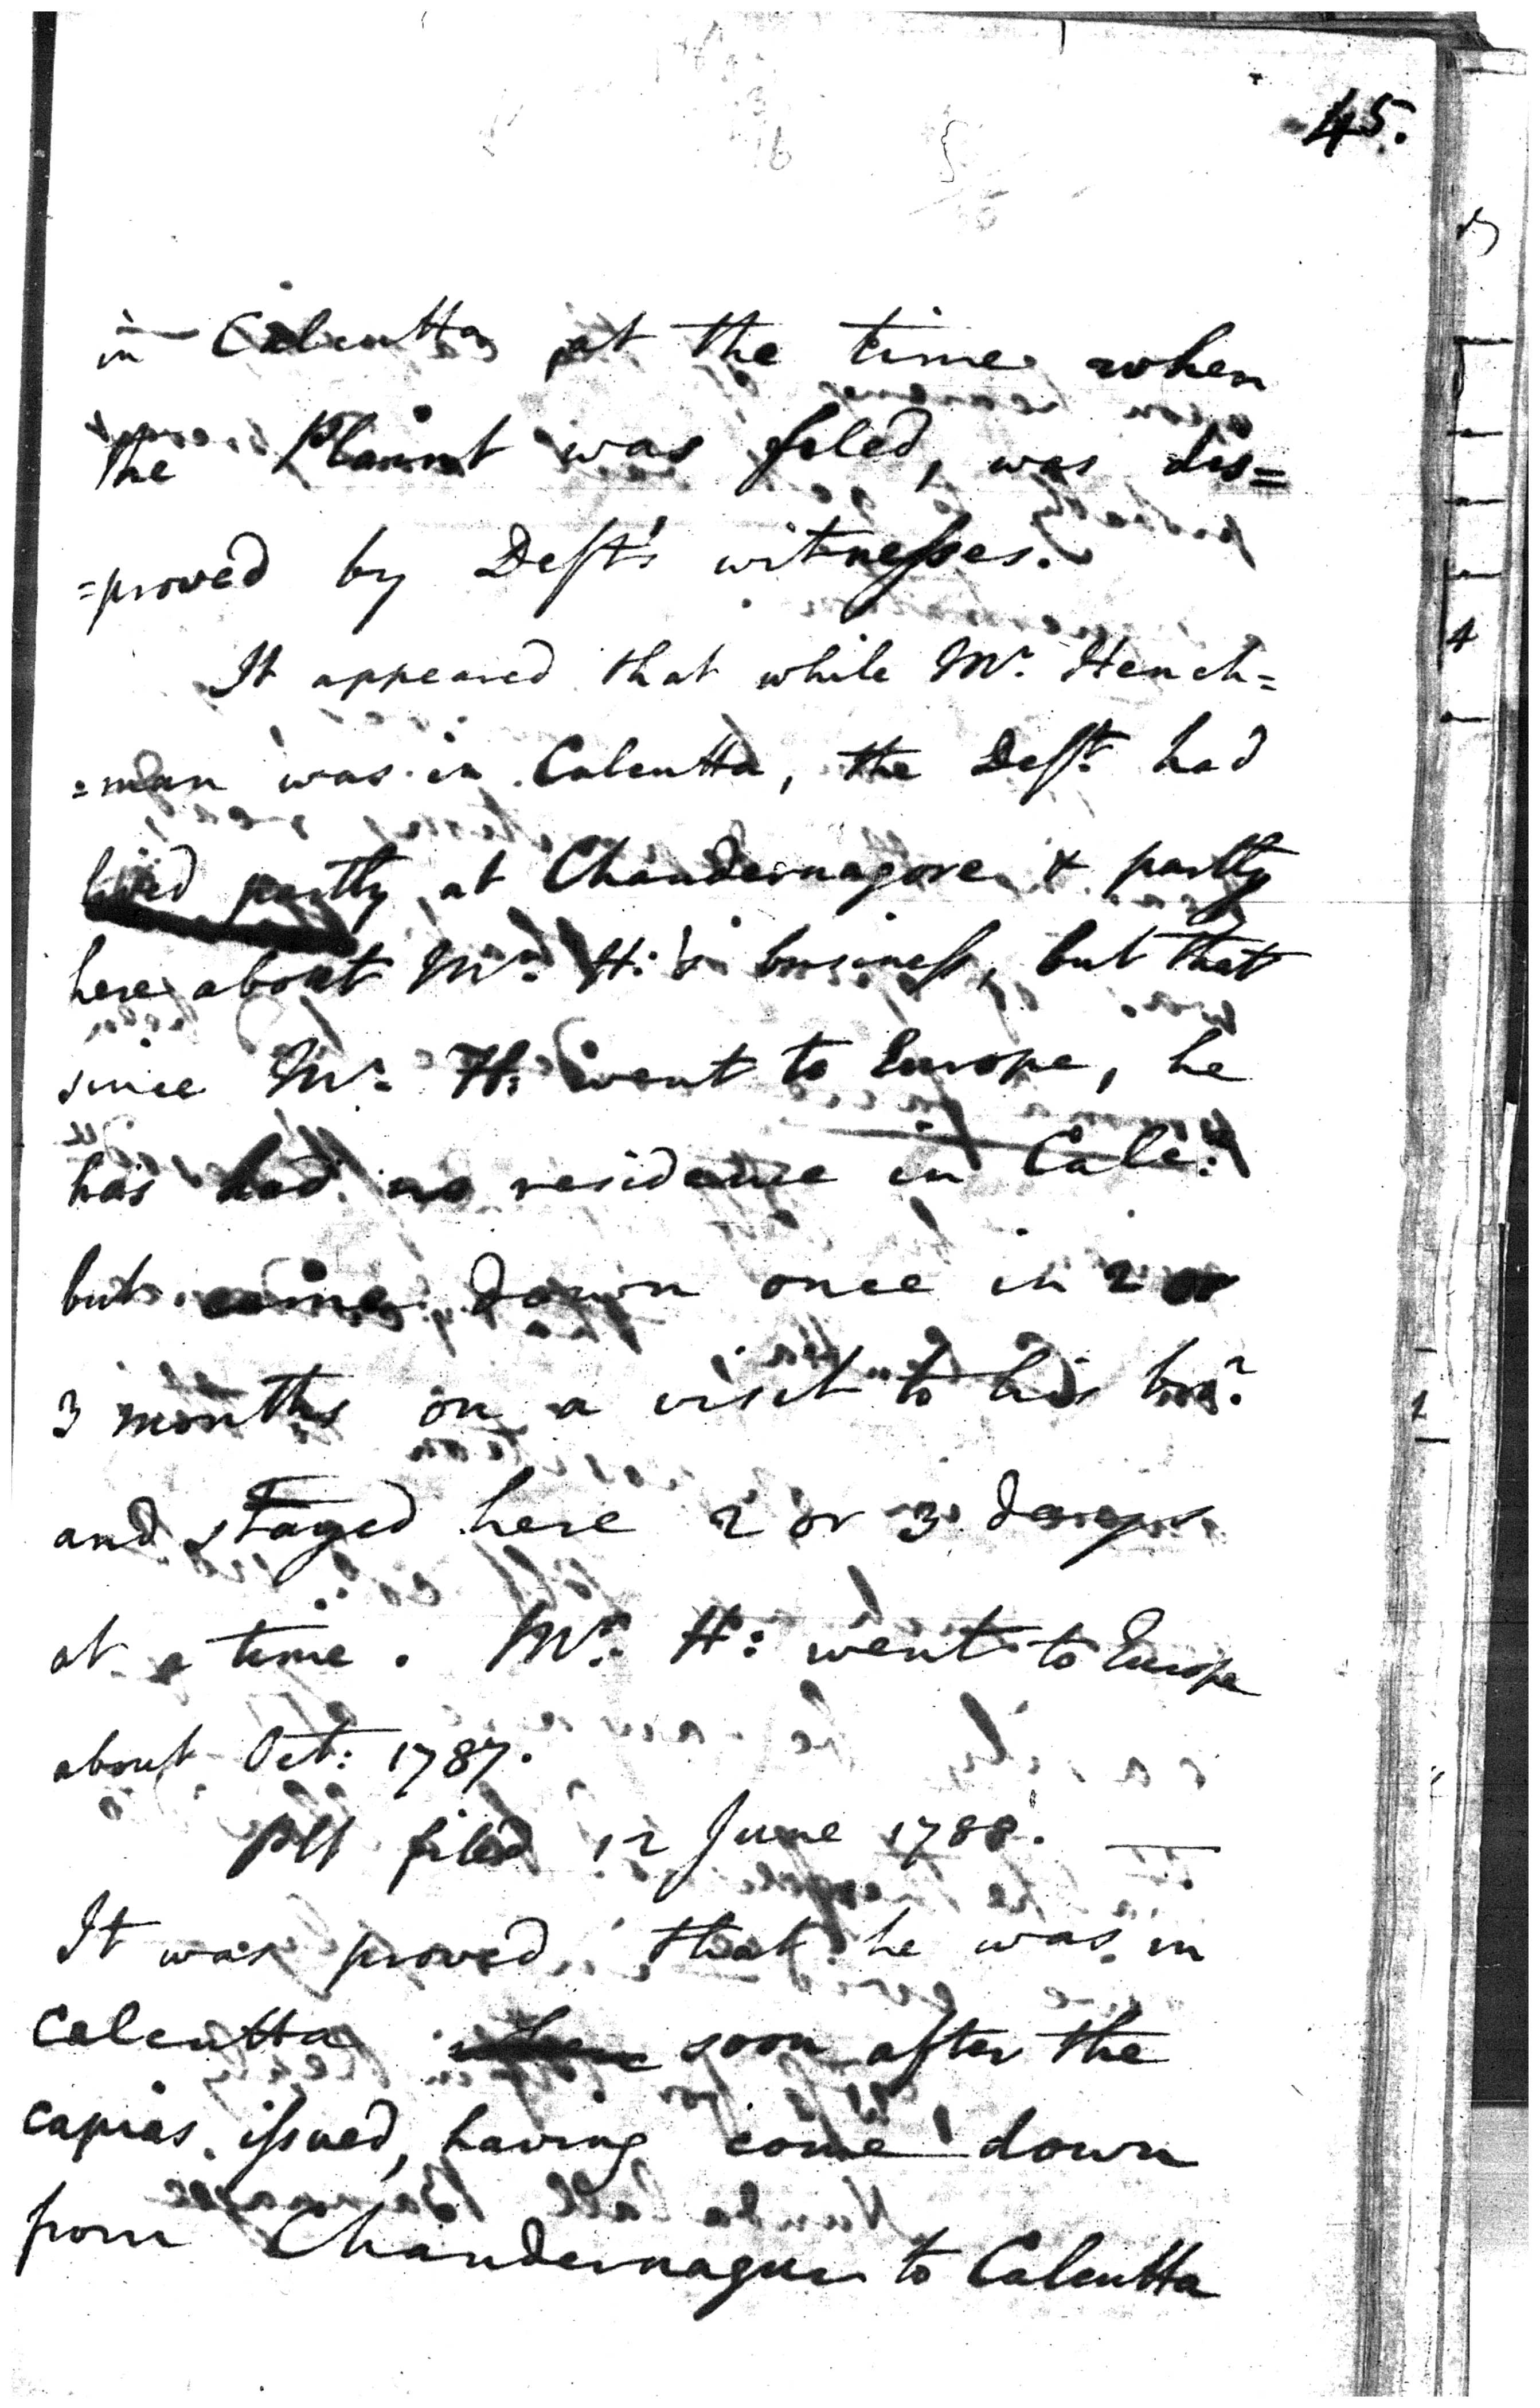 45.
in Calcutta at the time when
the Plaint was filed, was dis=
=proved by Deft's witnesses.
It appeared that while Mr. Hench=
=man was in Calcutta, the Deft. had
lived partly at Chandernagore & partly
here about Mr. H:'s business, but that
since Mr. H: went to Europe, he
has had no residence in Calc:
but down once in 2 or
3 months on a visit to his bror.
and stayed here 2 or 3 days
at a time. Mr. H: went to Europe
about Oct: 1787.
Plt filed 12 June 1788.
It was proved that he was in
Calcutta soon after the
capias issued, having come down
from Chandernagur to Calcutta